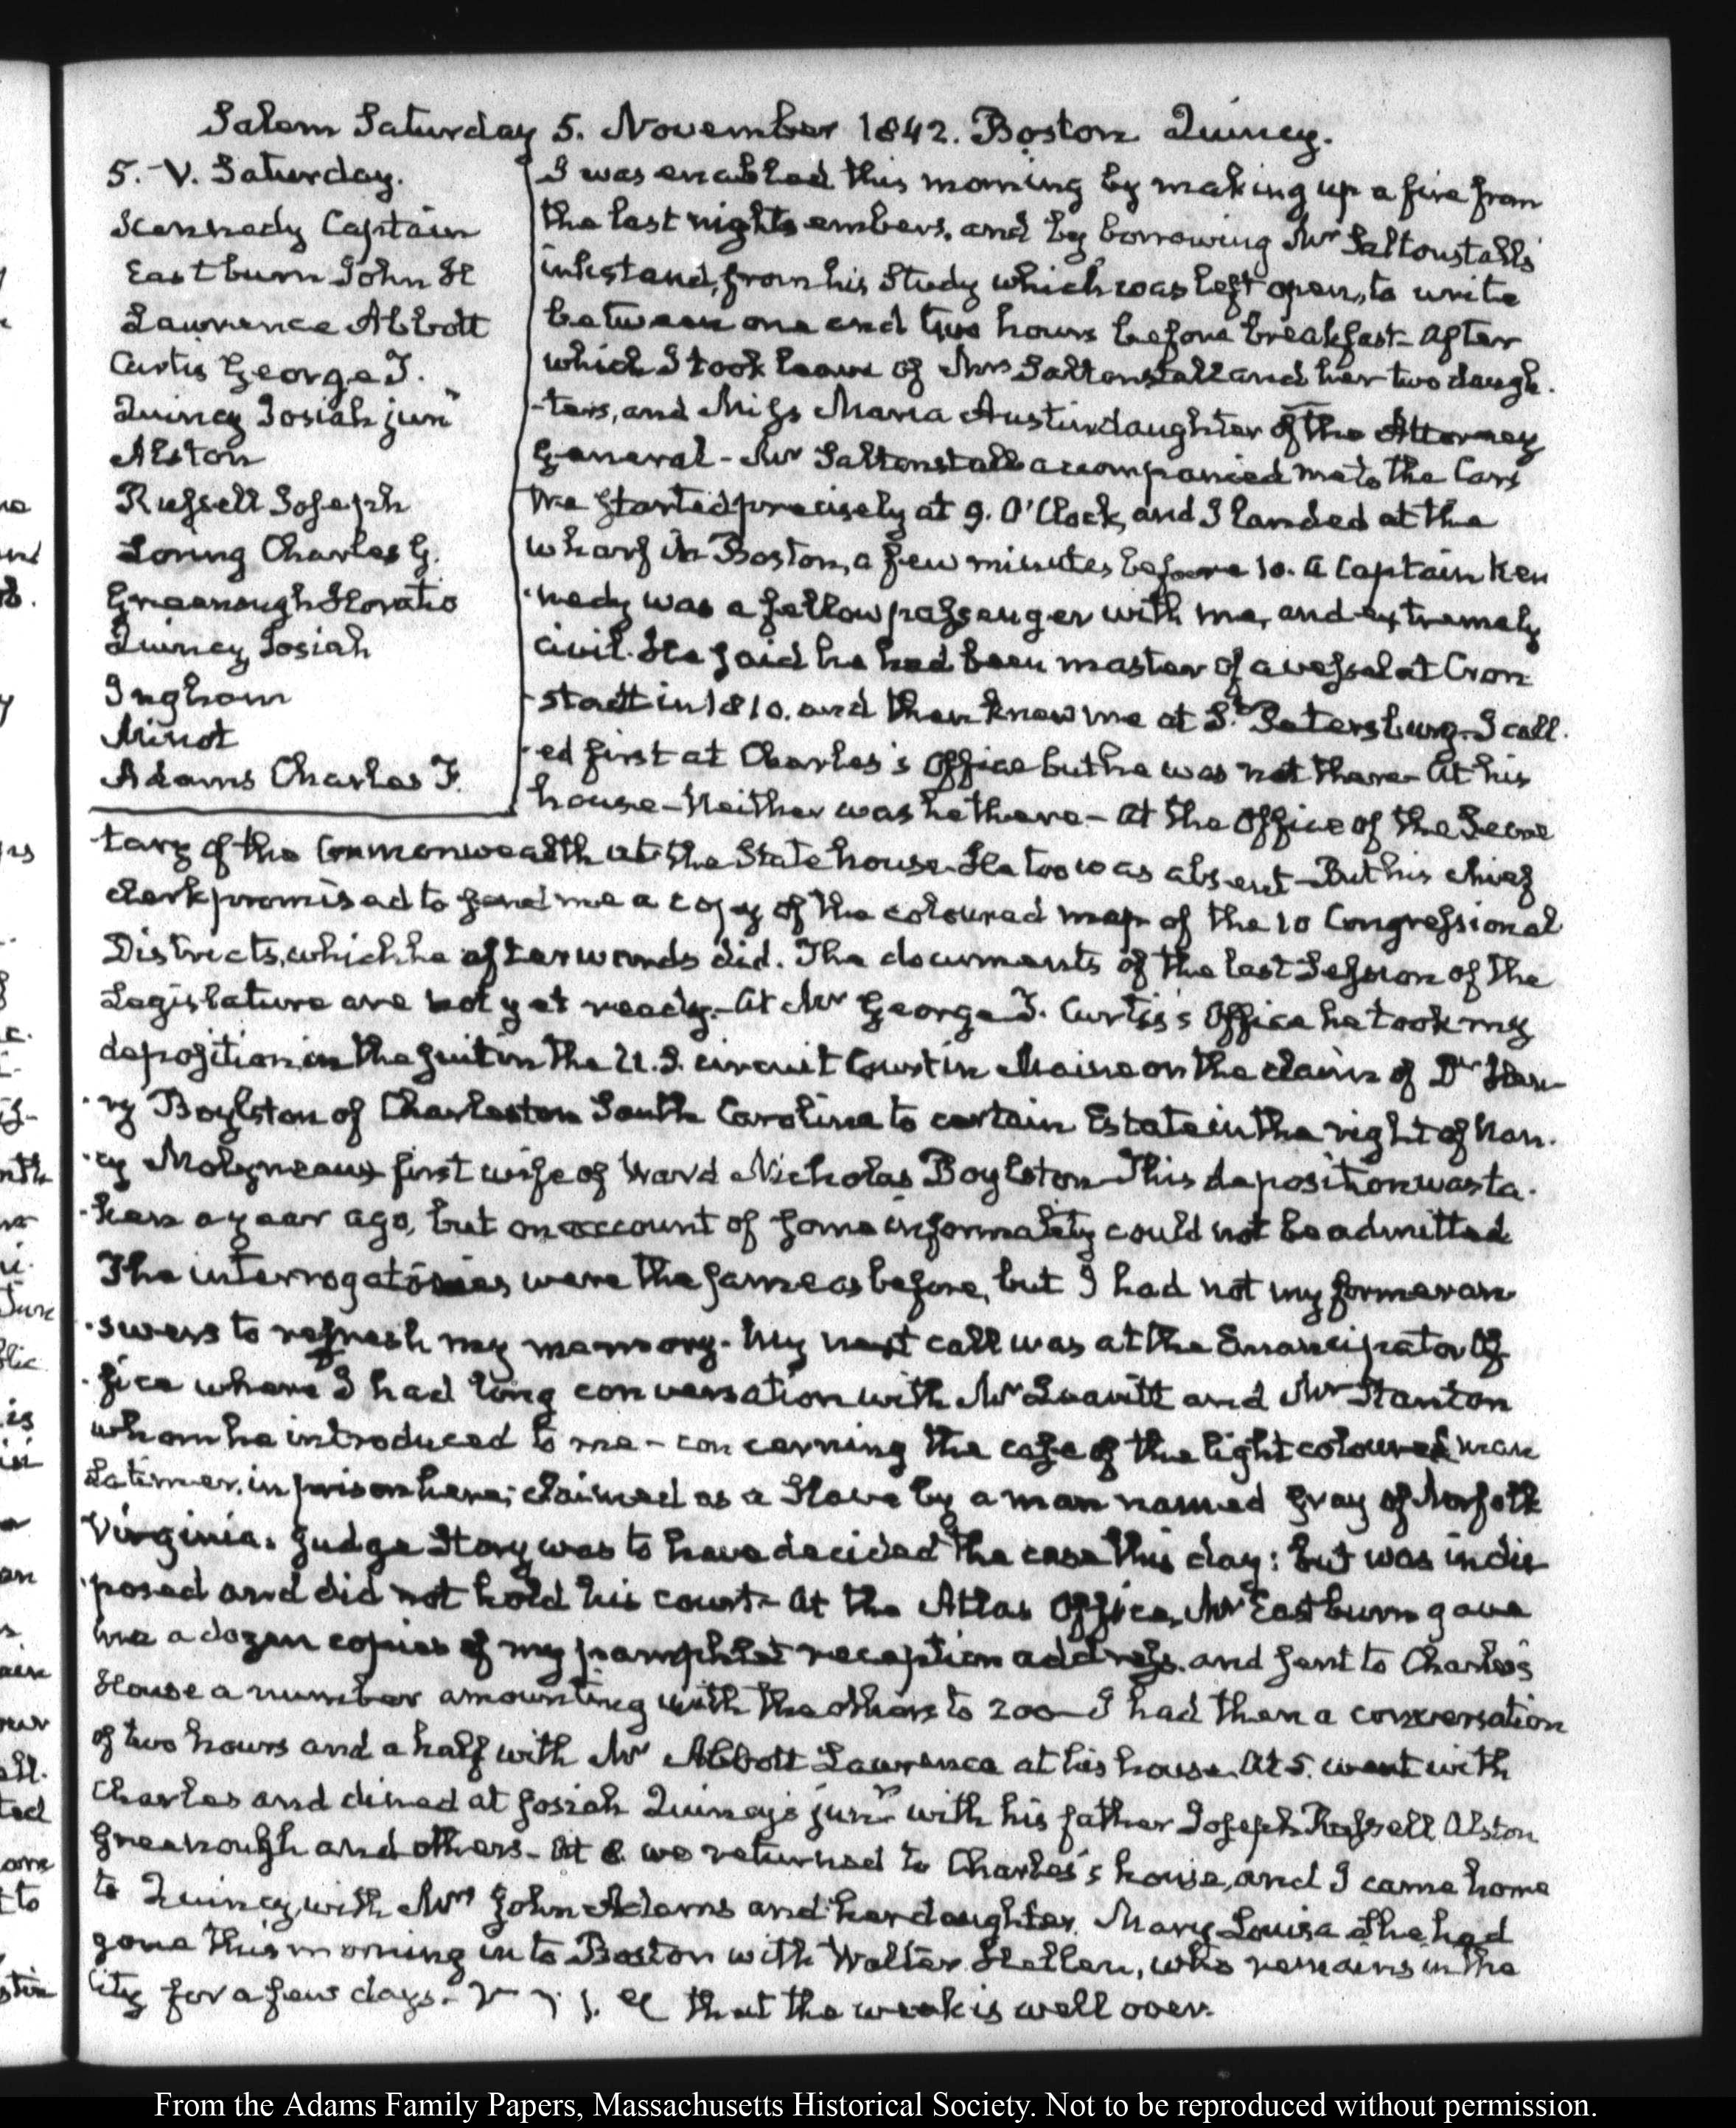 Salem Saturday 5. November 1842. Boston Quincy.
5. V. Saturday.
Kennedy Captain
Eastburn John H
Lawrence Abbott
Curtis George T.
Quincy Josiah junr
Alston
Russell Joseph
Loring Charles G.
Greenough Horatio
Quincy Josiah
Ingham
Minot
Adams Charles F.
I was enabled this morning by making up a fire from
the last nights embers, and by borrowing Mr Saltonstalls
inkstand, from his Study which was left open, to write
between one and two hours before breakfast- After
which I took leave of Mrs Saltonstall and her two daugh-
-ters, and Miss Maria Austin daughter of the Attorney
General- Mr Saltonstall accompanied me to the Cars
We started precisely at 9. O'Clock, and I landed at the
wharf in Boston, a few minutes before 10. A Captain Ken
-nedy was a fellow passenger with me, and extremely
civil. He said he had been master of a vessel at Cron
-stadt in 1810. and then knew me at St Petersburg- I call-
-ed first at Charles's Office but he was not there- At his
house- Neither was he there- At the Office of the Secre
tary of the Commonwealth at the State house- He too was absent- But his chief
clerk promised to send me a copy of the coloured map of the 10 Congressional
Districts, which he afterwards did. The documents of the last Session of the
Legislature are not yet ready.- At Mr George T. Curtis's Office he took my
deposition in the suit in the U.S. circuit Court in Maine on the claim of Dr Hen-
-ry Boylston of Charleston South Carolina to certain Estate in the right of Nan-
-cy Molyneaux first wife of Ward Nicholas Boylston- This deposition was ta-
-ken a year ago, but on account of some informality could not be admitted
The interrogatories were the same as before, but I had not my former an-
-swers to refresh my memory. My next call was at the Emancipator Of-
-fice where I had long conversation with Mr Leavitt and Mr Stanton
whom he introduced to me- concerning the case of the light coloured man
Latimer, in prison here; claimed as a Slave by a man named Gray of Norfolk
Virginia. Judge Story was to have decided the case this day: but was indis
-posed and did not hold his court- At the Atlas Office, Mr Eastburn gave
me a dozen copies of my pamphlet reception address. and sent to Charles's
House a number amounting with the others to 200- I had then a conversation
of two hours and a half with Mr Abbott Lawrence at his house. At 5. went with
Charles and dined at Josiah Quincy's junr with his father Joseph Russell, Alston
Greenough and others- At 8. we returned to Charles's house, and I came home
to Quincy, with Mrs John Adams and her daughter, Mary Louisa She had
gone this morning into Boston with Walter Hellen, who remains in the
City for a few days.- that the week is well over.
From the Adams Family Papers, Massachusetts Historical Society. Not to be reproduced without permission.